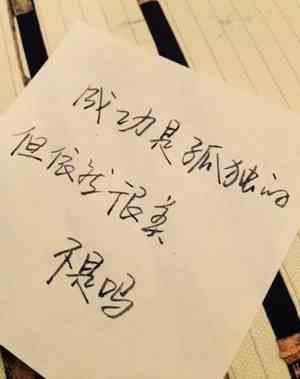 成功是孤独的
但依然很美
不是吗